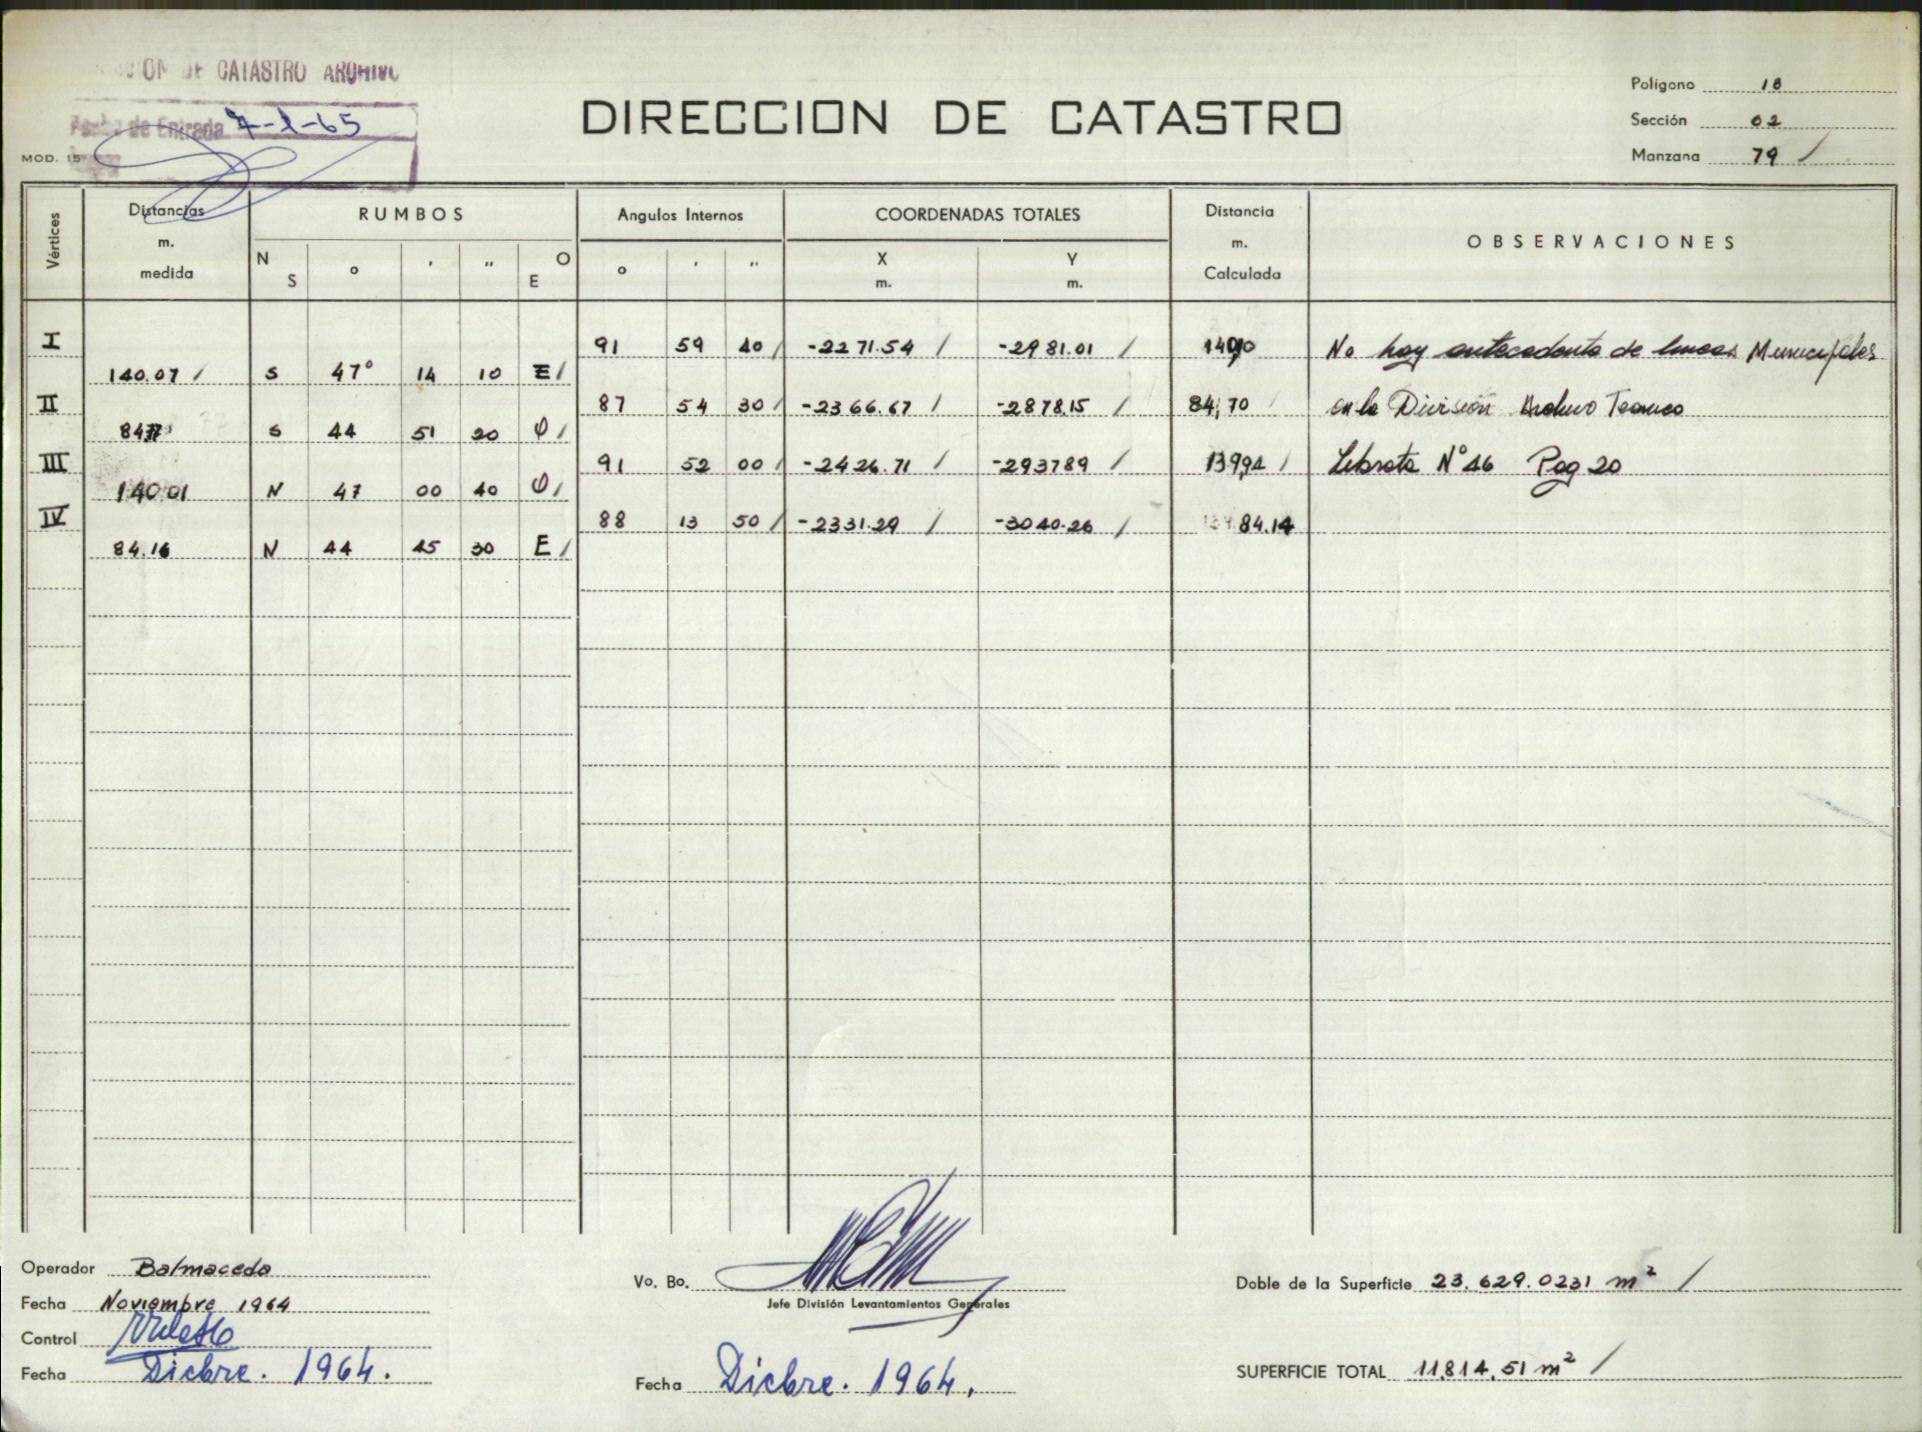 DE CATASTRO ARCHIVO
de Entrada 7-1-65
MOD. 15
DIRECCION DE CATASTRO
Polígono 18
Sección 02
Manzana 79 /
Vértices
Distancias m. medida
RUMBOS
N S ° ' " O E
Angulos Internos
° ' "
COORDENADAS TOTALES
X m. Y m.
Distancia m. Calculada
OBSERVACIONES
I 91 59 40 / -2271.54 / -2981.01 / 140,10 No hay antecedente de lineas Municipales
140.07 / S 47° 14 10 E /
II 87 54 30 / -2366.67 / -2878.15 / 84,70 / en la División Archivo Tecnico
S 44 51 20 O /
III 91 52 00 / -2426.71 / -2937.89 / 139,94 / Libreta N° 46 Pag 20
140.01 N 47 00 40 O /
IV 88 13 50 / -2331.29 / -3040.26 / 84.14
84.16 N 44 45 30 E /
Operador Balmaceda
Fecha Noviembre 1964
Control
Fecha Dicbre. 1964.
Vo. Bo.
Jefe División Levantamientos Generales
Fecha Dicbre. 1964.
Doble de la Superficie 23.629.0231 m² /
SUPERFICIE TOTAL 11,814,51 m² /